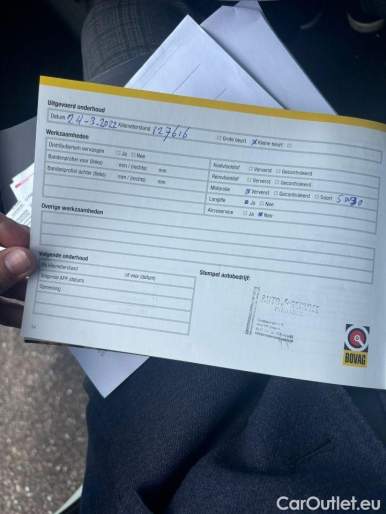 Uitgevoerd onderhoud
Datum 24-3-2022 Kilometerstand 127616 Grote beurt Kleine beurt
Werkzaamheden
Distributieriem vervangen Ja Nee
Bandenprofiel voor (links) mm / (rechts) mm
Bandenprofiel achter (links) mm / (rechts) mm
Koelvloeistof Ververst Gecontroleerd
Remvloeistof Ververst Gecontroleerd
Motorolie Ververst Gecontroleerd Soort
Longlife Ja Nee
Aircoservice Ja Nee
Overige werkzaamheden
Volgende onderhoud
Bij kilometerstand of voor (datum)
Volgende APK (datum)
Opmerking
Stempel autobedrijf:
BOVAG
CarOutlet.eu